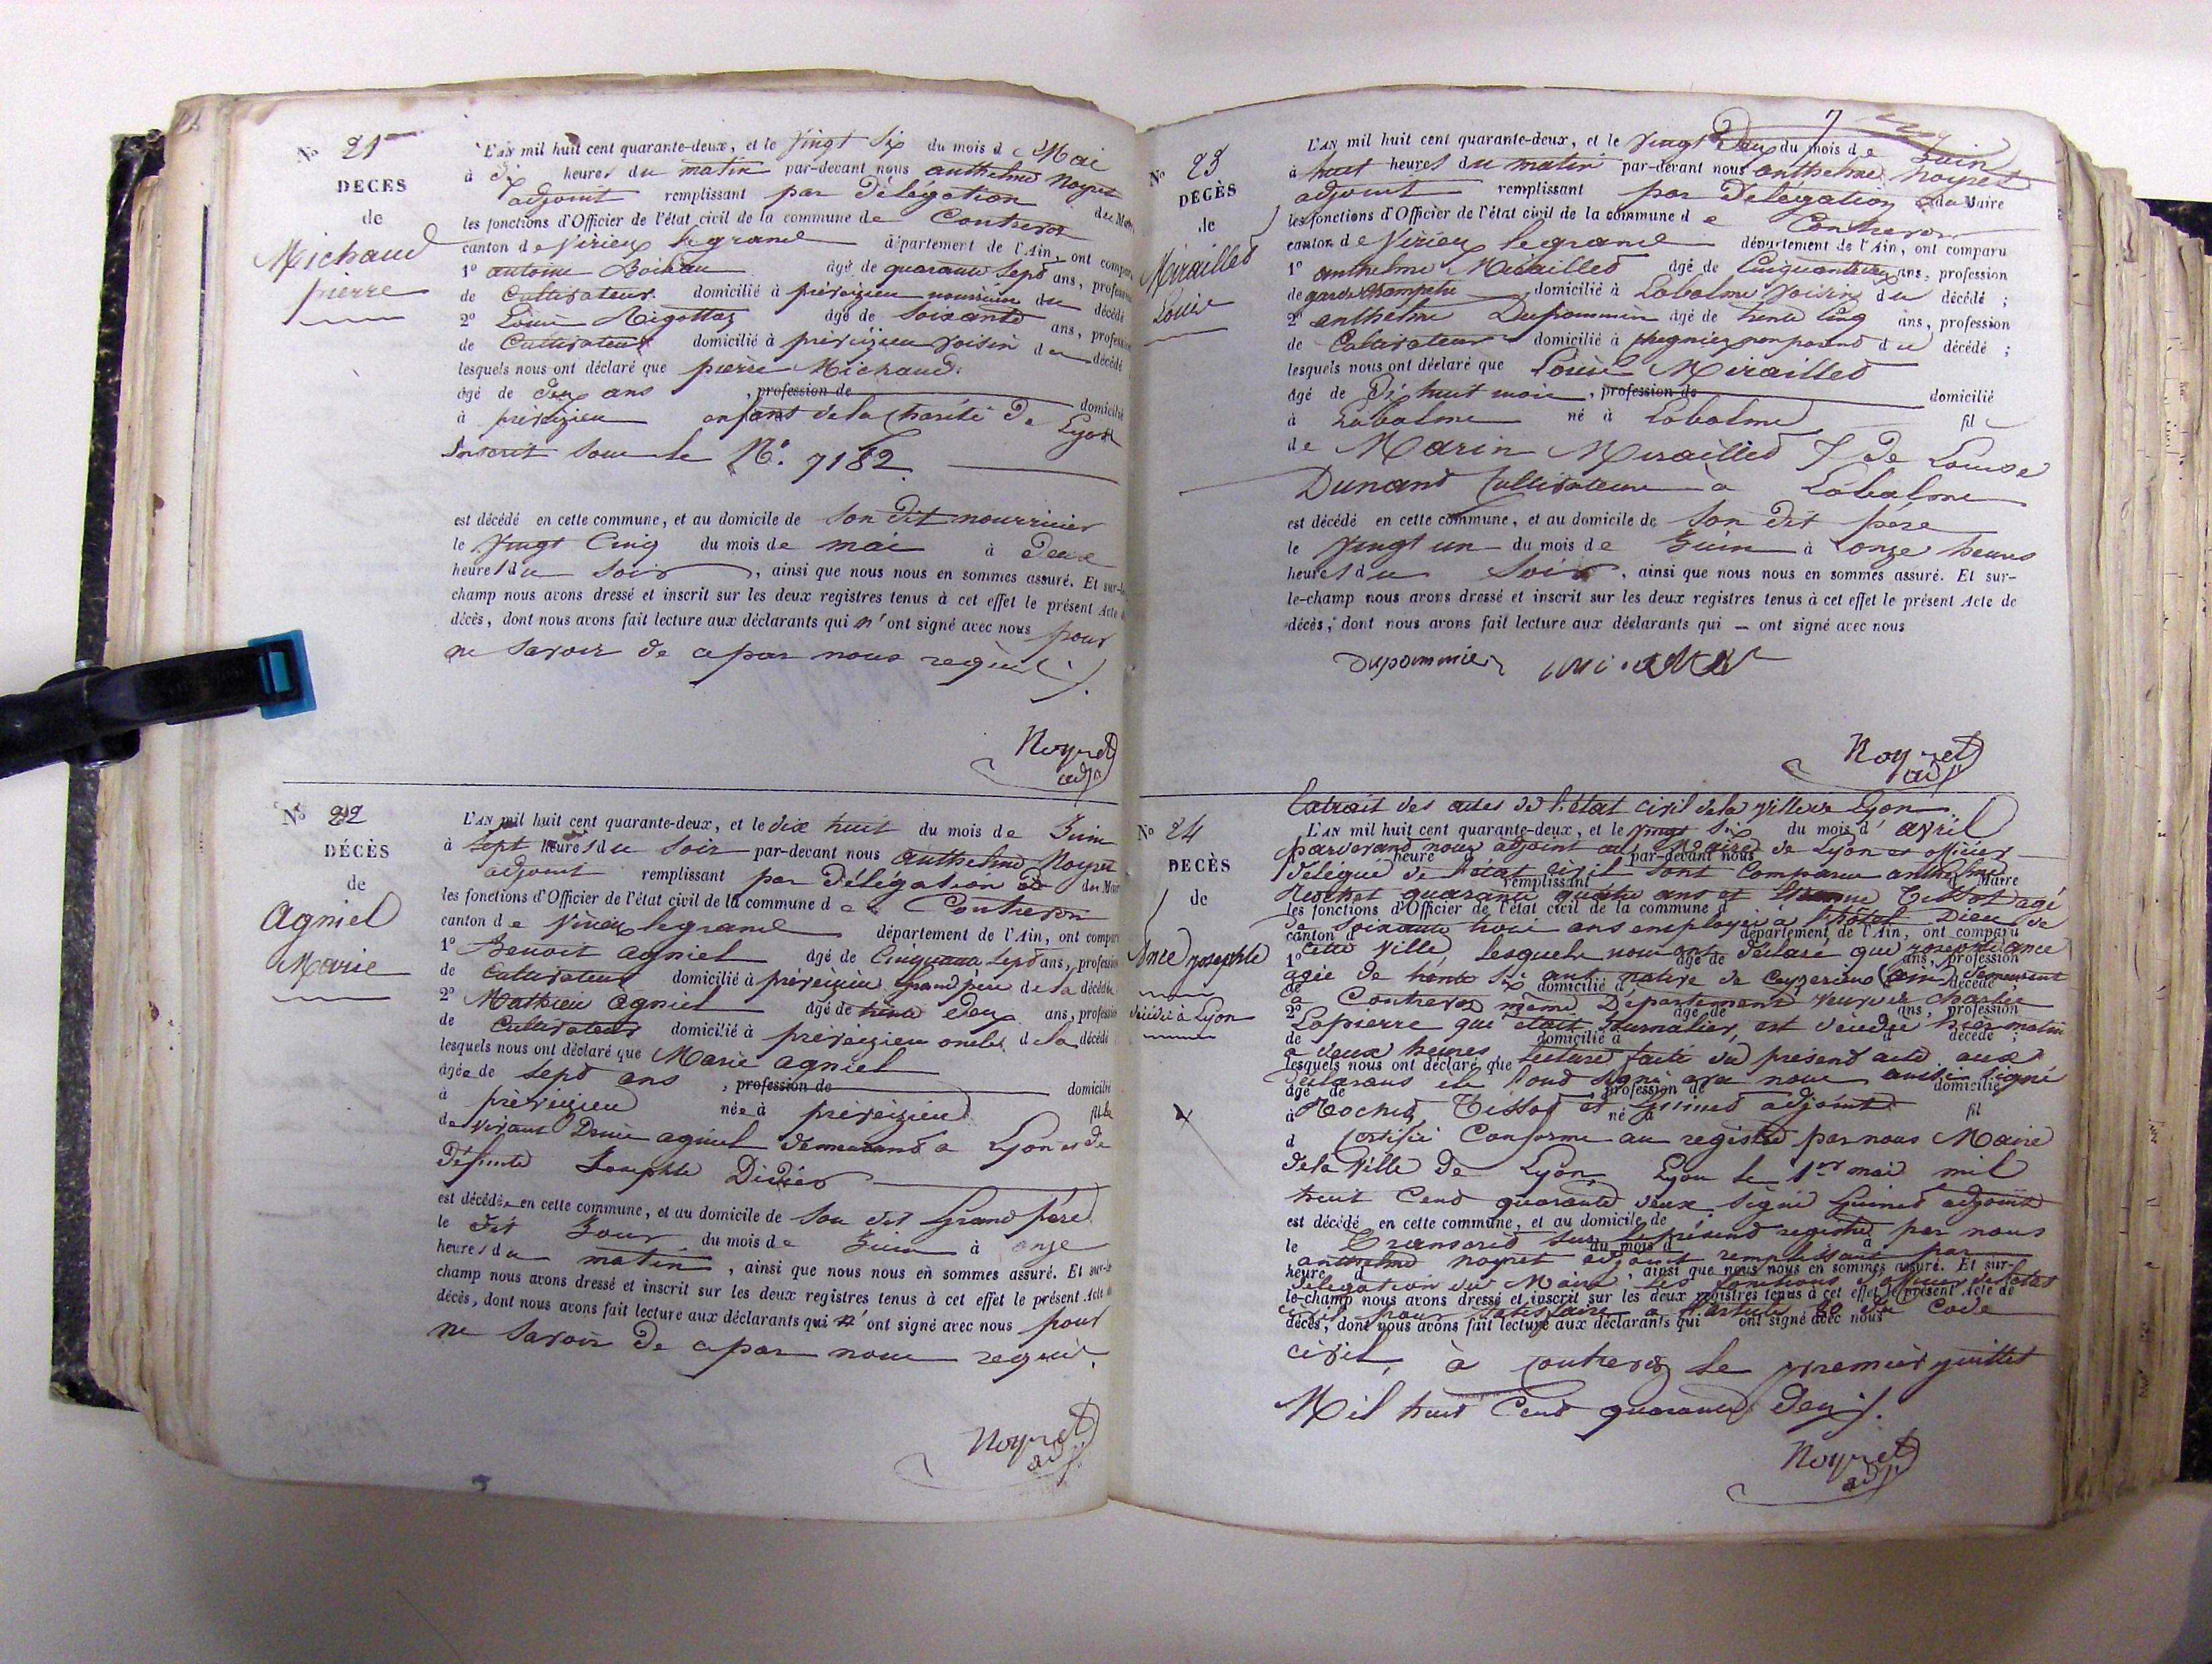 No 21
DECES
de
Michaud
pierre
L'AN mil huit cent quarante-deux, et le Vingt Six du mois de Mai
à Six heures du matin par-devant nous anthelme Noyret
adjoint remplissant par Délégation du Maire
les fonctions d'Officier de l'état civil de la commune de Contrevoz
canton de Virieux legrand département de l'Ain, ont comparu
1º antoine Boileau âgé de quarante Sept ans, profession
de Cultivateur domicilié à préveizieu nourricier du décédé
2º Louis Rigottaz âgé de Soixante ans, profession
de Cultivateur domicilié à préveizieu Voisin du décédé
lesquels nous ont déclaré que pierre Michaud
âgé de deux ans , profession de domicilié
à préveizieu enfant de la Charité de Lyon
Inscrit Sous le Nº. 7182
est décédé en cette commune, et au domicile de Son dit nourricier
le Vingt Cinq du mois de mai à deux
heures du Soir , ainsi que nous nous en sommes assuré. Et sur-le-
champ nous avons dressé et inscrit sur les deux registres tenus à cet effet le présent Acte de
décès, dont nous avons fait lecture aux déclarants qui n'ont signé avec nous pour
ne Savoir de ce par nous requis
Noyret
adj
No 22
DÉCÈS
de
Agniel
Marie
L'AN mil huit cent quarante-deux, et le dix huit du mois de Juin
à Sept heures du Soir par-devant nous anthelme Noyret
adjoint remplissant par Délégation du Maire
les fonctions d'Officier de l'état civil de la commune de Contrevoz
canton de Virieux legrand département de l'Ain, ont comparu
1º Benoit Agniel âgé de Cinquante Sept ans, profession
de Cultivateur domicilié à préveizieu Grand père de la décédée
2º Mathieu Agniel âgé de trente deux ans, profession
de Cultivateur domicilié à préveizieu oncle de la décédé
lesquels nous ont déclaré que Marie Agniel
âgée de Sept ans , profession de domicilié
à préveizieu née à préveizieu fille
de vivant Denis agniel demeurant a Lyon et de
Défunte Josephte Didier
est décédée en cette commune, et au domicile de Son dit Grand père
le dit Jour du mois de Juin à onze
heures du matin , ainsi que nous nous en sommes assuré. Et sur-le-
champ nous avons dressé et inscrit sur les deux registres tenus à cet effet le présent Acte de
décès, dont nous avons fait lecture aux déclarants qui n'ont signé avec nous pour
ne Savoir de ce par nous requis
Noyret
adj
7
No 23
DÉCÈS
de
Mirailled
Louis
L'AN mil huit cent quarante-deux, et le Vingt Deux du mois de Juin
à huit heures du matin par-devant nous anthelme Noyret
adjoint remplissant par Délégation du Maire
les fonctions d'Officier de l'état civil de la commune de Contrevoz
canton de Virieux legrand département de l'Ain, ont comparu
1º anthelme Mirailled âgé de Cinquante deux ans, profession
de garde Champetre domicilié à Labalme Voisin du décédé ;
2º anthelme Dupommier âgé de trente Cinq ans, profession
de Cultivateur domicilié à non parent du décédé ;
lesquels nous ont déclaré que Louis Mirailled
âgé de Dix huit mois , profession de domicilié
à Labalme né à Labalme fils
de Marin Mirailled & de Louise
Dunand Cultivateurs à Labalme
est décédé en cette commune, et au domicile de Son dit père
le Vingt un du mois de Juin à onze heures
heures du Soir , ainsi que nous nous en sommes assuré. Et sur-
le-champ nous avons dressé et inscrit sur les deux registres tenus à cet effet le présent Acte de
décès, dont nous avons fait lecture aux déclarants qui — ont signé avec nous
Dupommier
Noyret
adj
No 24
DECÈS
de
Ance josephte
décédée à Lyon
Extrait des actes de l'état civil de la Ville de Lyon
L'AN mil huit cent quarante-deux, et le Vingt Six du mois d'avril
pardevant nous adjoint au Maire de Lyon et officier
heure par-devant nous
délégué de l'état civil Sont Comparu anthelme
remplissant d Maire
Rochet quarante quatre ans et Etienne Tissot agé
les fonctions d'Officier de l'état civil de la commune d
de Soixante trois ans employés a l'hôtel Dieu de
canton d département de l'Ain, ont comparu
cette Ville, Lesquels nous ont déclaré que josephte ance
1º âgé de ans, profession
agée de trente Six ans native de Ceyzerieu (ain) demeurant
de domicilié à décédé
à Contrevoz même Département Veuve de Charles
2º âgé de ans, profession
Lapierre qui était Journalier, est décédée hier matin
de domicilié à d décédé ;
a deux heures Lecture faite du présent acte aux
lesquels nous ont déclaré que
déclarans ils l'ont Signé avec nous aussi Signé
âgé de profession de domicilié
Rochet, Tissot et Guimet adjoint
à né à fil
d Certifié Conforme au registre par nous Maire
de la Ville de Lyon, Lyon le 1er mai mil
huit Cent quarante deux Signé Guimet adjoint
est décédé en cette commune, et au domicile de
Transcrit Sur le présent registre par nous
le du mois d à
anthelme Noyret adjoint remplissant par
heure d , ainsi que nous nous en sommes assuré. Et sur-
délégation du Maire les fonctions d'officier de l'état
le-champ nous avons dressé et inscrit sur les deux registres tenus à cet effet le présent Acte de
civil pour Satisfaire a l'article 80 du Code
décès, dont nous avons fait lecture aux déclarants qui ont signé avec nous
civil, à Contrevoz le premier juillet
Mil huit Cent quarante Deux.
Noyret
adj